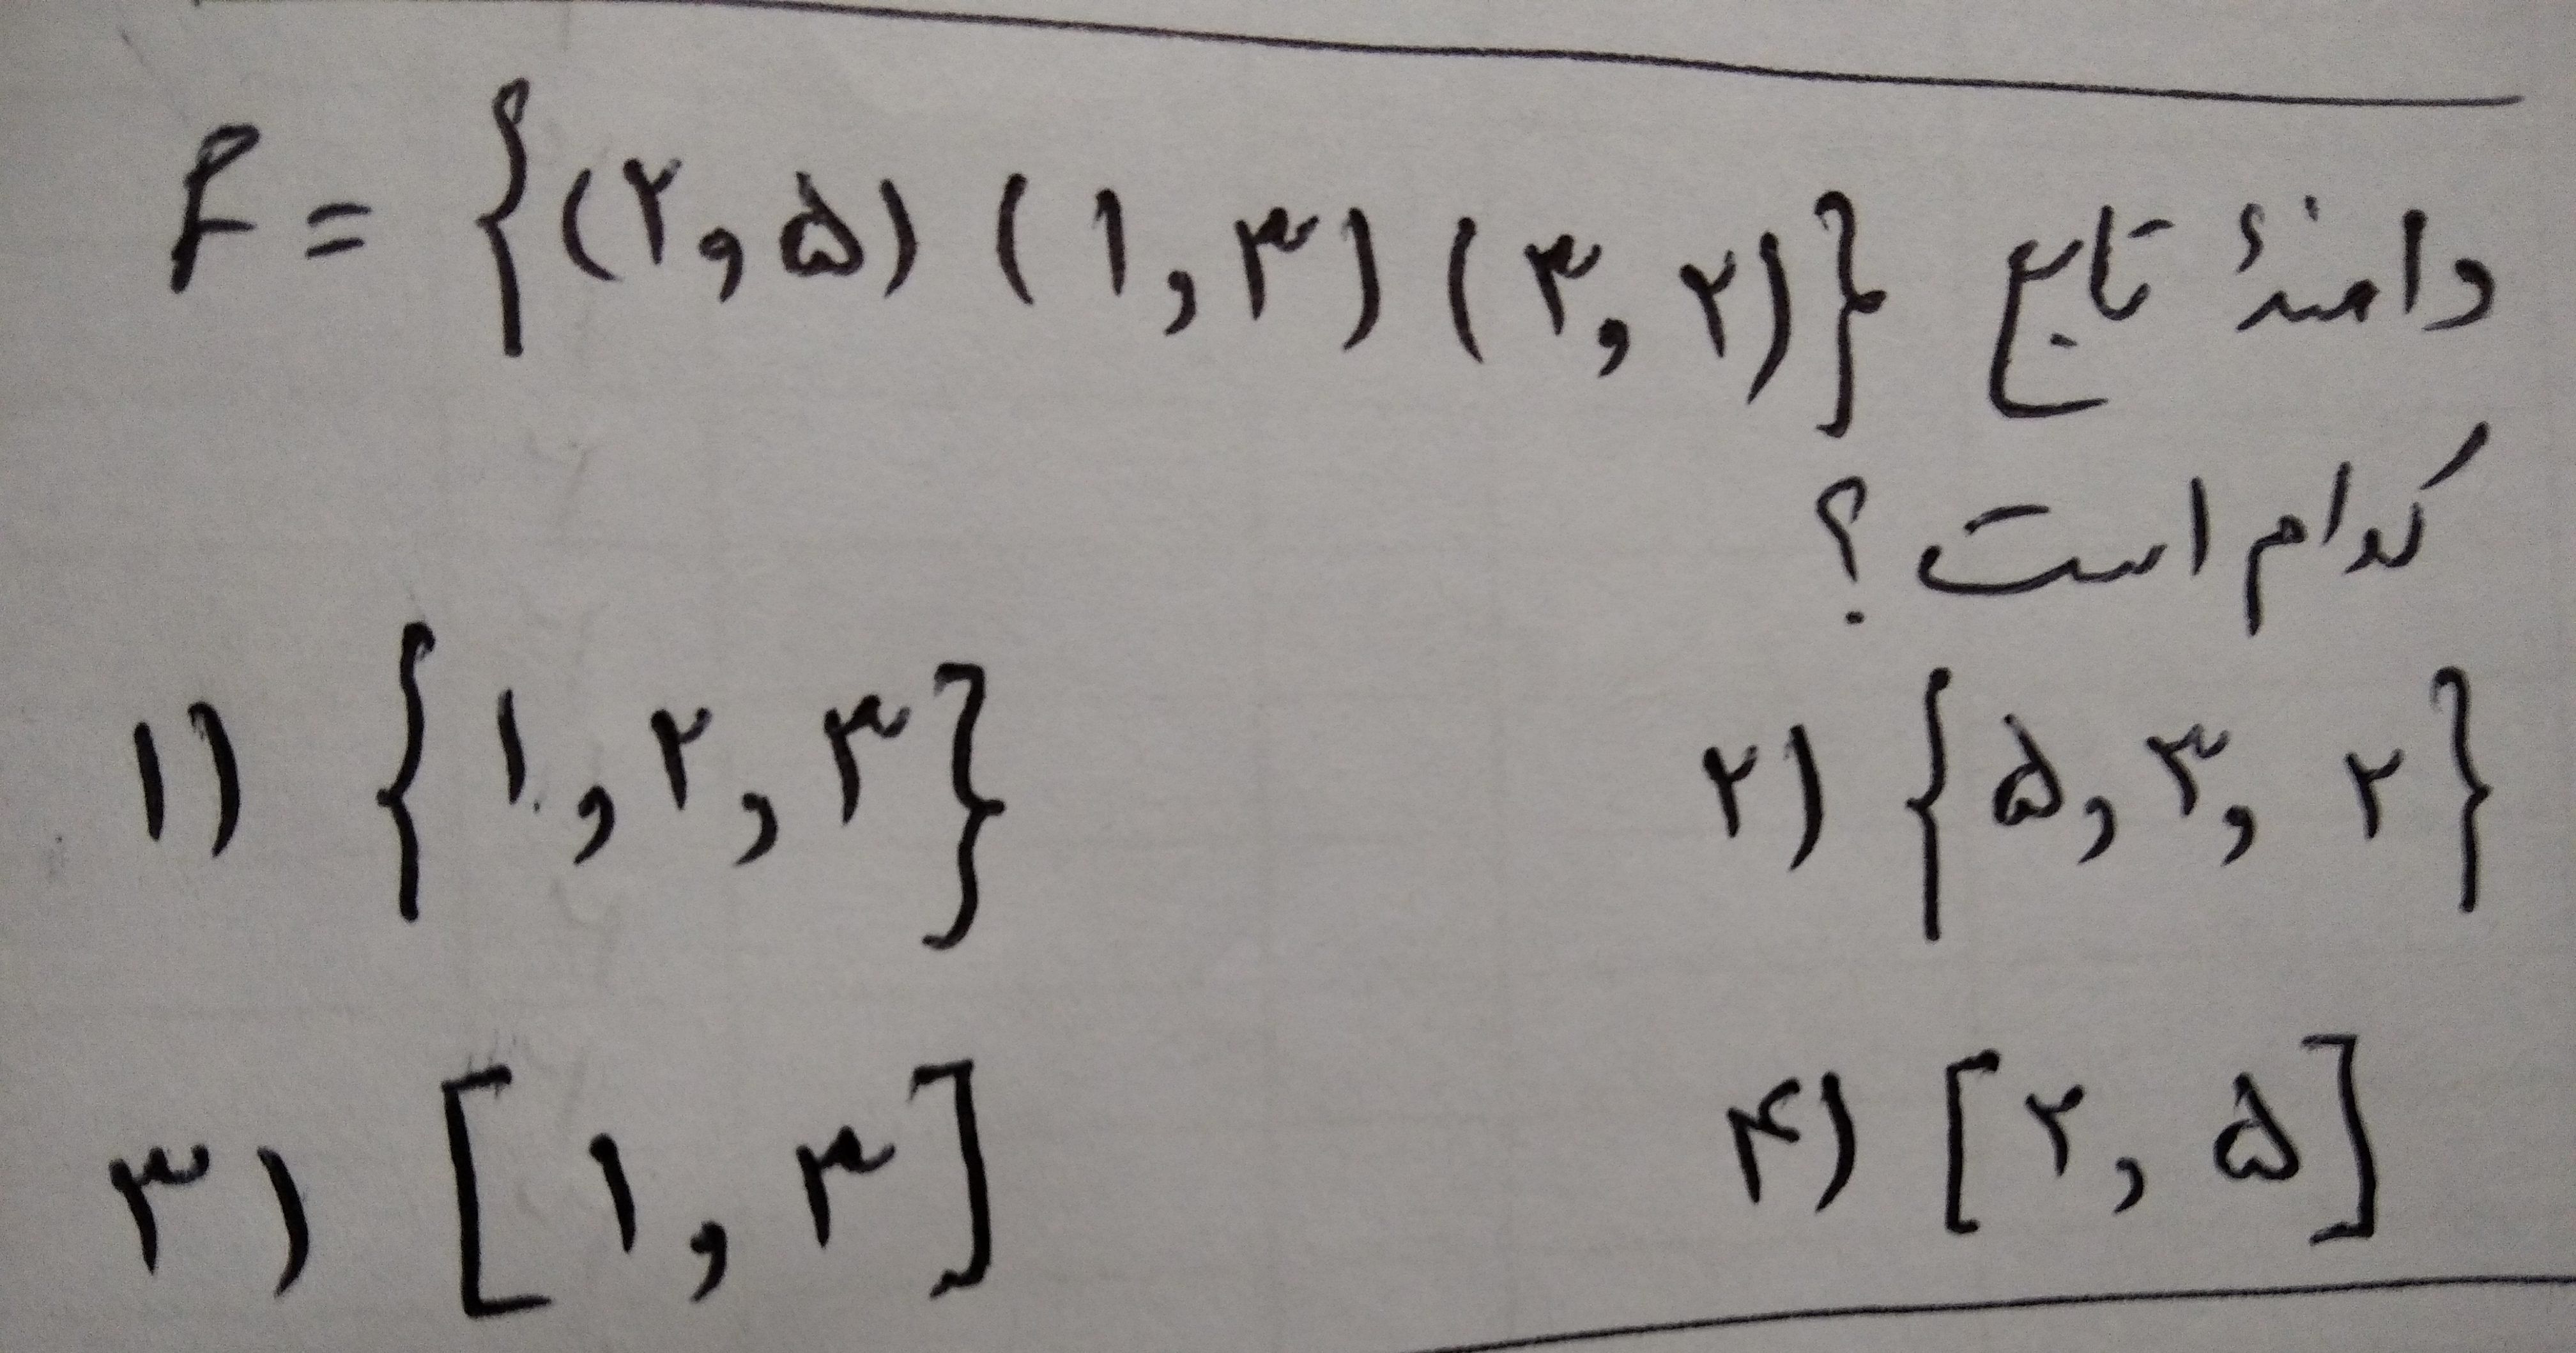 دامنهٔ تابع F = {(۲,۵) (۱,۳) (۳,۲)}
کدام است؟
۱) {۱,۲,۳} ۲) {۵,۳,۲}
۳) [۱,۳] ۴) [۲,۵]